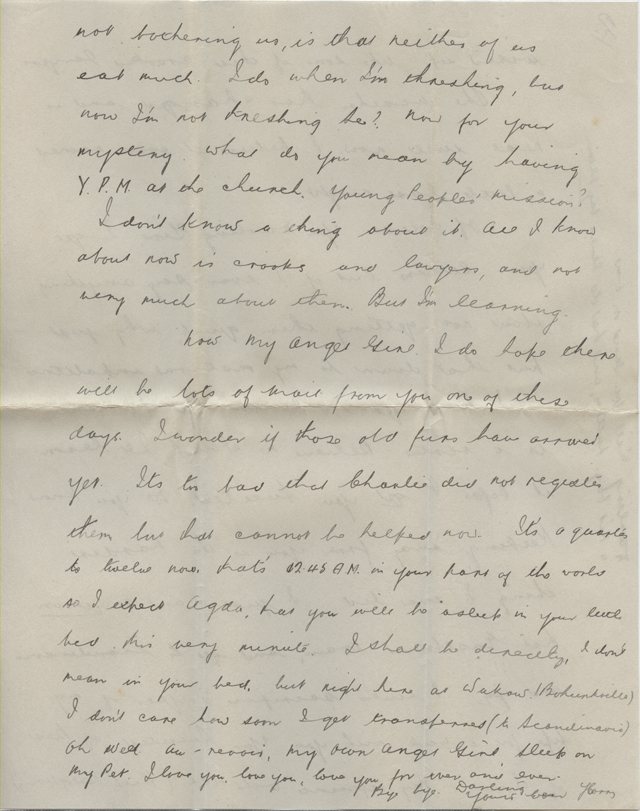 not bothering us, is that neither of us
eat much. I do when I'm threshing, but
now I'm not threshing be? Now for your
mystery. What do you mean by having
Y.P.M. at the church. Young Peoples' mission?
I don't know a thing about it. All I know
about now is crooks and lawyers, and not
very much about them. But I'm learning.
Now my angel Girl. I do hope there
will be lots of mail from you one of these
days. I wonder if those old furs have arrived
yet. Its too bad that Charlie did not register
them but that cannot be helped now. It's a quarter
to twelve now. that's 12.45 A.M. in your part of the world
so I expect Agda, that you will be asleep in your little
bed this very minute. I shall be directly, I don't
mean in your bed, but right here at Wakaw (Bohunkville)
I don't care how soon I get transferred (to Scandinavia)
Oh well au-revoir, my own angel Girl sleep on
My Pet. I love you, love you, love you, for ever and ever.
Bye bye. Darling
Yours